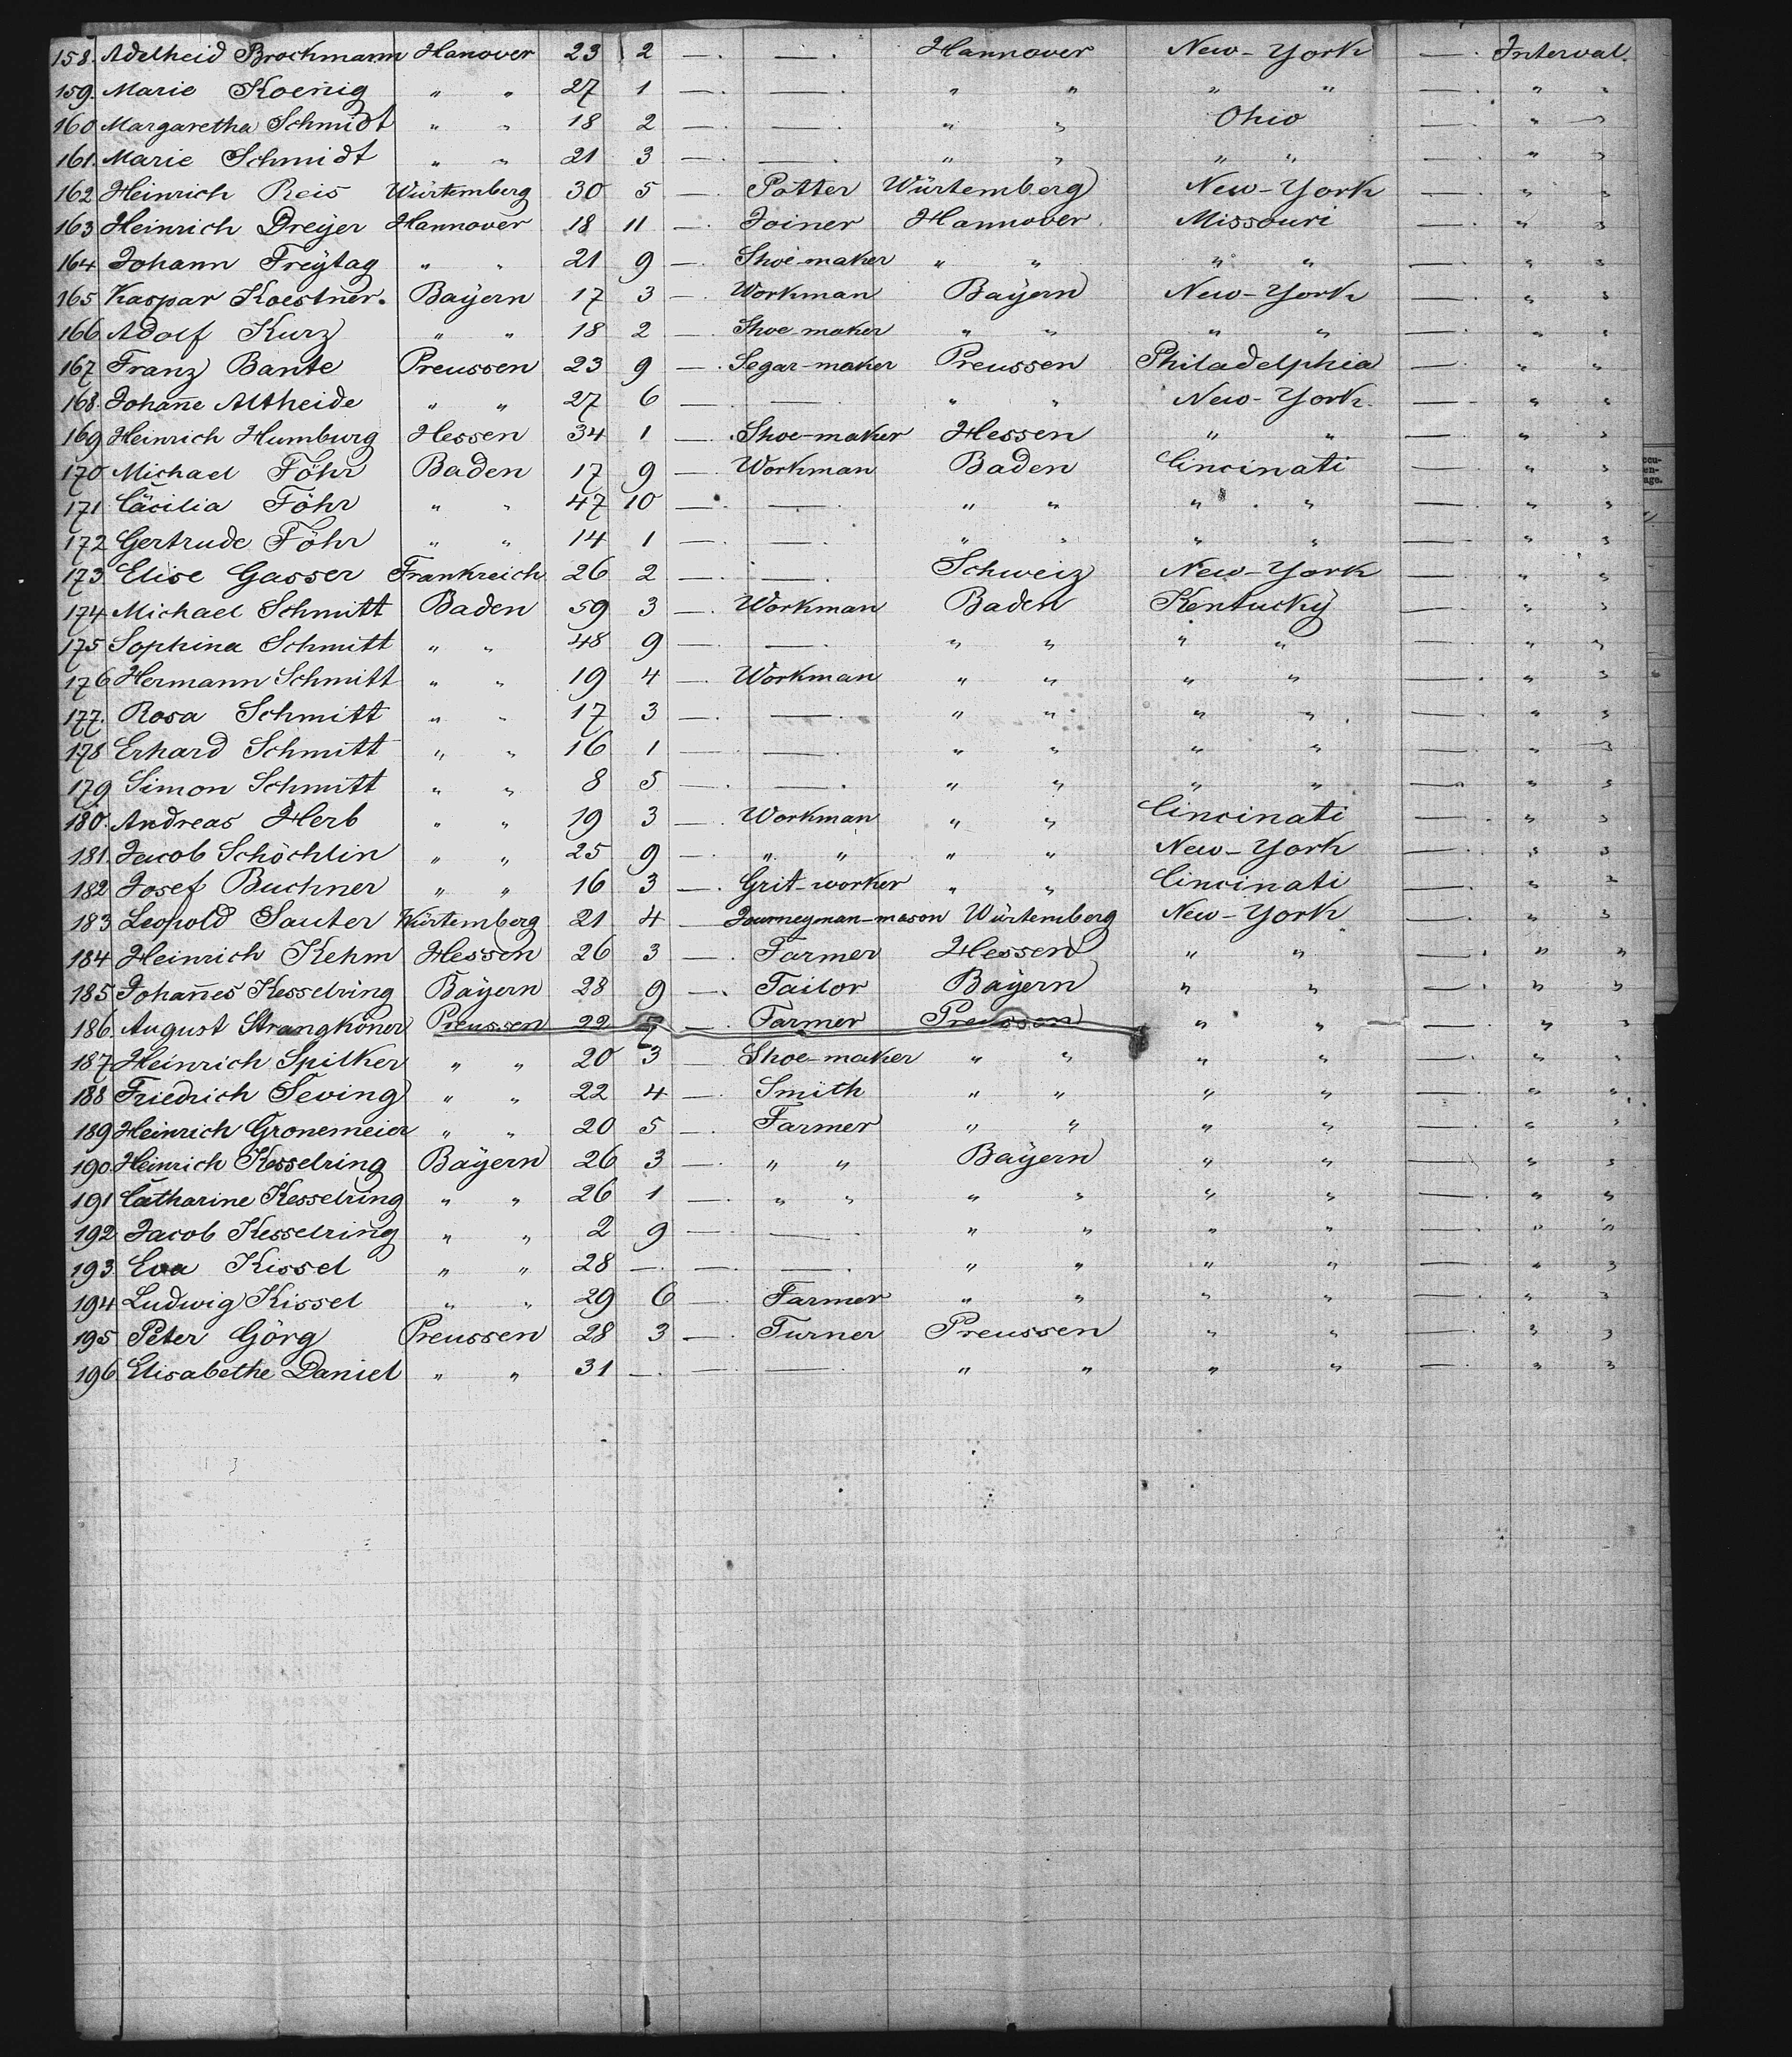 158. Adelheid Brockmann Hanover 23 2 —. —. Hannover New-York —. Interval.
159. Marie Koenig " " 27 1 —. —. " " " " —. " "
160 Margaretha Schmidt " " 18 2 —. —. " " Ohio —. " "
161. Marie Schmidt " " 21 3 —. —. " " " " —. " "
162 Heinrich Reis Würtemberg 30 5 —. Potter Würtemberg New-York —. " "
163 Heinrich Dreyer Hannover 18 11 —. Joiner Hannover. Missouri —. " "
164 Johann Freÿtag " " 21 9 —. Shoe-maker " " " " —. " "
165 Kaspar Koestner. Baÿern 17 3 —. Workman Baÿern New-York —. " "
166 Adolf Kurz " " 18 2 —. Shoe-maker " " " " —. " "
167 Franz Bante Preussen 23 9 —. Segar-maker Preussen Philadelphia —. " "
168. Johan̄e Altheide " " 27 6 —. —. " " New-York. —. " "
169 Heinrich Humburg Hessen 34 1 —. Shoe-maker Hessen " " —. " "
170 Michael Föhr Baden 17 9 —. Workman Baden Cincinati —. " "
171 Cäcilia Föhr " " 47 10 —. —. " " " " —. " "
172 Gertrude Föhr " " 14 1 —. —. " " " " —. " "
173 Elise Gasser Frankreich 26 2 —. —. Schweiz New-York —. " "
174 Michael Schmitt Baden 59 3 —. Workman Baden Kentuckÿ —. " "
175 Sophina Schmitt " " 48 9 —. —. " " " " —. " "
176 Hermann Schmitt " " 19 4 —. Workman " " " " —. " "
177. Rosa Schmitt " " 17 3 —. —. " " " " —. " "
178 Erhard Schmitt " " 16 1 —. —. " " " " —. " "
179 Simon Schmitt " " 8 5 —. —. " " " " —. " "
180. Andreas Herb " " 19 3 —. Workman " " Cincinati —. " "
181. Jacob Schöchlin " " 25 9 —. " " " " New-York —. " "
182 Josef Buchner " " 16 3 —. Grit-worker " " Cincinati —. " "
183 Leopold Sauter Würtemberg 21 4 — Journeyman-mason Würtemberg New-York —. " "
184 Heinrich Kehm Hessen 26 3 —. Farmer Hessen " " —. " "
185 Johan̄es Kesselring Baÿern 28 9 —. Tailor Bayern " " —. " "
186. August Strangköner Preussen 22 5 —. Farmer Preussen " " —. " "
187 Heinrich Spilker " " 20 3 — Shoe-maker " " " " —. " "
188 Friedrich Seving " " 22 4 —. Smith " " " " —. " "
189 Heinrich Gronemeier " " 20 5 —. Farmer " " " " —. " "
190. Heinrich Kesselring Baÿern 26 3 —. " " Baÿern " " —. " "
191 Catharine Kesselring " " 26 1 —. " " " " " " —. " "
192 Jacob Kesselring " " 2 9 —. —. " " " " —. " "
193. Eva Kissel " " 28 —. —. —. " " " " —. " "
194 Ludwig Kissel " " 29 6 —. Farmer " " " " —. " "
195 Peter Görg Preussen 28 3 —. Turner Preussen " " —. " "
196 Elisabethe Daniel " " 31 —. —. —. " " " " —. " "